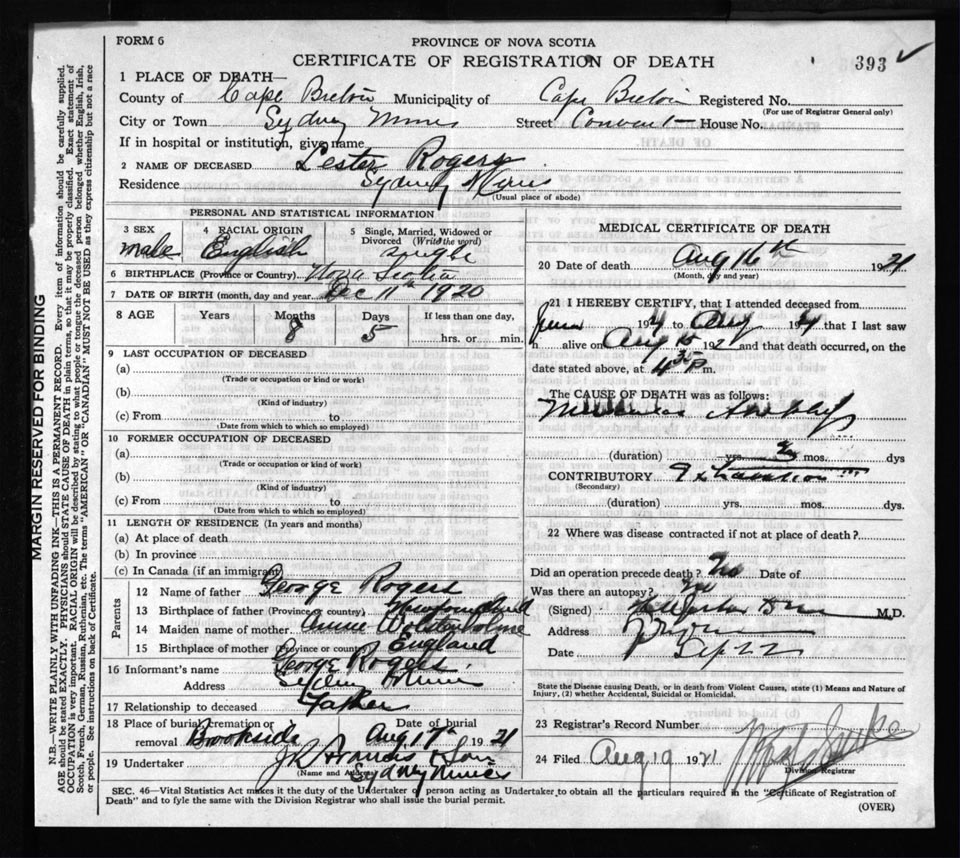 FORM 6
PROVINCE OF NOVA SCOTIA
CERTIFICATE OF REGISTRATION OF DEATH 393
1 PLACE OF DEATH—
County of Cape Breton Municipality of Cape Breton Registered No.
(For use of Registrar General only)
City or Town Sydney Mines Street Convent House No.
If in hospital or institution, give name
2 NAME OF DECEASED Lester Rogers
Residence Sydney Mines
(Usual place of abode)
PERSONAL AND STATISTICAL INFORMATION
3 SEX male
4 RACIAL ORIGIN English
5 Single, Married, Widowed or Divorced (Write the word) single
6 BIRTHPLACE (Province or Country) Nova Scotia
7 DATE OF BIRTH (month, day and year) Dec 11th 1920
8 AGE Years Months 8 Days 5 If less than one day, hrs. or min.
9 LAST OCCUPATION OF DECEASED
(a)
(Trade or occupation or kind or work)
(b)
(Kind of industry)
(c) From to
(Date from which to which so employed)
10 FORMER OCCUPATION OF DECEASED
(a)
(Trade or occupation or kind of work)
(b)
(Kind of industry)
(c) From to
(Date from which to which so employed)
11 LENGTH OF RESIDENCE (In years and months)
(a) At place of death
(b) In province
(c) In Canada (if an immigrant)
Parents
12 Name of father George Rogers
13 Birthplace of father (Province or country) Newfoundland
14 Maiden name of mother Annie Wolstenholme
15 Birthplace of mother (Province or country) England
16 Informant's name George Rogers
Address Sydney Mines
17 Relationship to deceased Father
18 Place of burial, cremation or removal Brookside Date of burial Aug 17th 1921
19 Undertaker J R Francis & Son
(Name and Address) Sydney Mines
MEDICAL CERTIFICATE OF DEATH
20 Date of death Aug 16th 1921
(Month, day and year)
21 I HEREBY CERTIFY, that I attended deceased from
June 1921 to Aug 1921 that I last saw
h alive on Aug 15 1921 and that death occurred, on the
date stated above, at 4 35 P m.
The CAUSE OF DEATH was as follows:
(duration) yrs. 2 mos. dys
CONTRIBUTORY Exhaustion
(Secondary)
(duration) yrs. mos. dys.
22 Where was disease contracted if not at place of death?
Did an operation precede death? No Date of
Was there an autopsy? No
(Signed) M.D.
Address
Date Sep 22
State the Disease causing Death, or in death from Violent Causes, state (1) Means and Nature of Injury, (2) whether Accidental, Suicidal or Homicidal.
23 Registrar's Record Number
24 Filed Aug 19 1921
Division Registrar
SEC. 46—Vital Statistics Act makes it the duty of the Undertaker or person acting as Undertaker to obtain all the particulars required in the "Certificate of Registration of
Death" and to fyle the same with the Division Registrar who shall issue the burial permit.
(OVER)
MARGIN RESERVED FOR BINDING
N.B.—WRITE PLAINLY WITH UNFADING INK—THIS IS A PERMANENT RECORD. Every item of information should be carefully supplied.
AGE should be stated EXACTLY. PHYSICIANS should STATE CAUSE OF DEATH in plain terms, so that it may be properly classified. Exact statement of
OCCUPATION is very important. RACIAL ORIGIN will be described by stating to what people or tongue the deceased person belonged whether English, Irish,
Scotch, French, German, Russian, Ruthenian, etc. The terms "AMERICAN" OR "CANADIAN" MUST NOT BE USED as they express citizenship but not a race
or people. See instructions on back of Certificate.